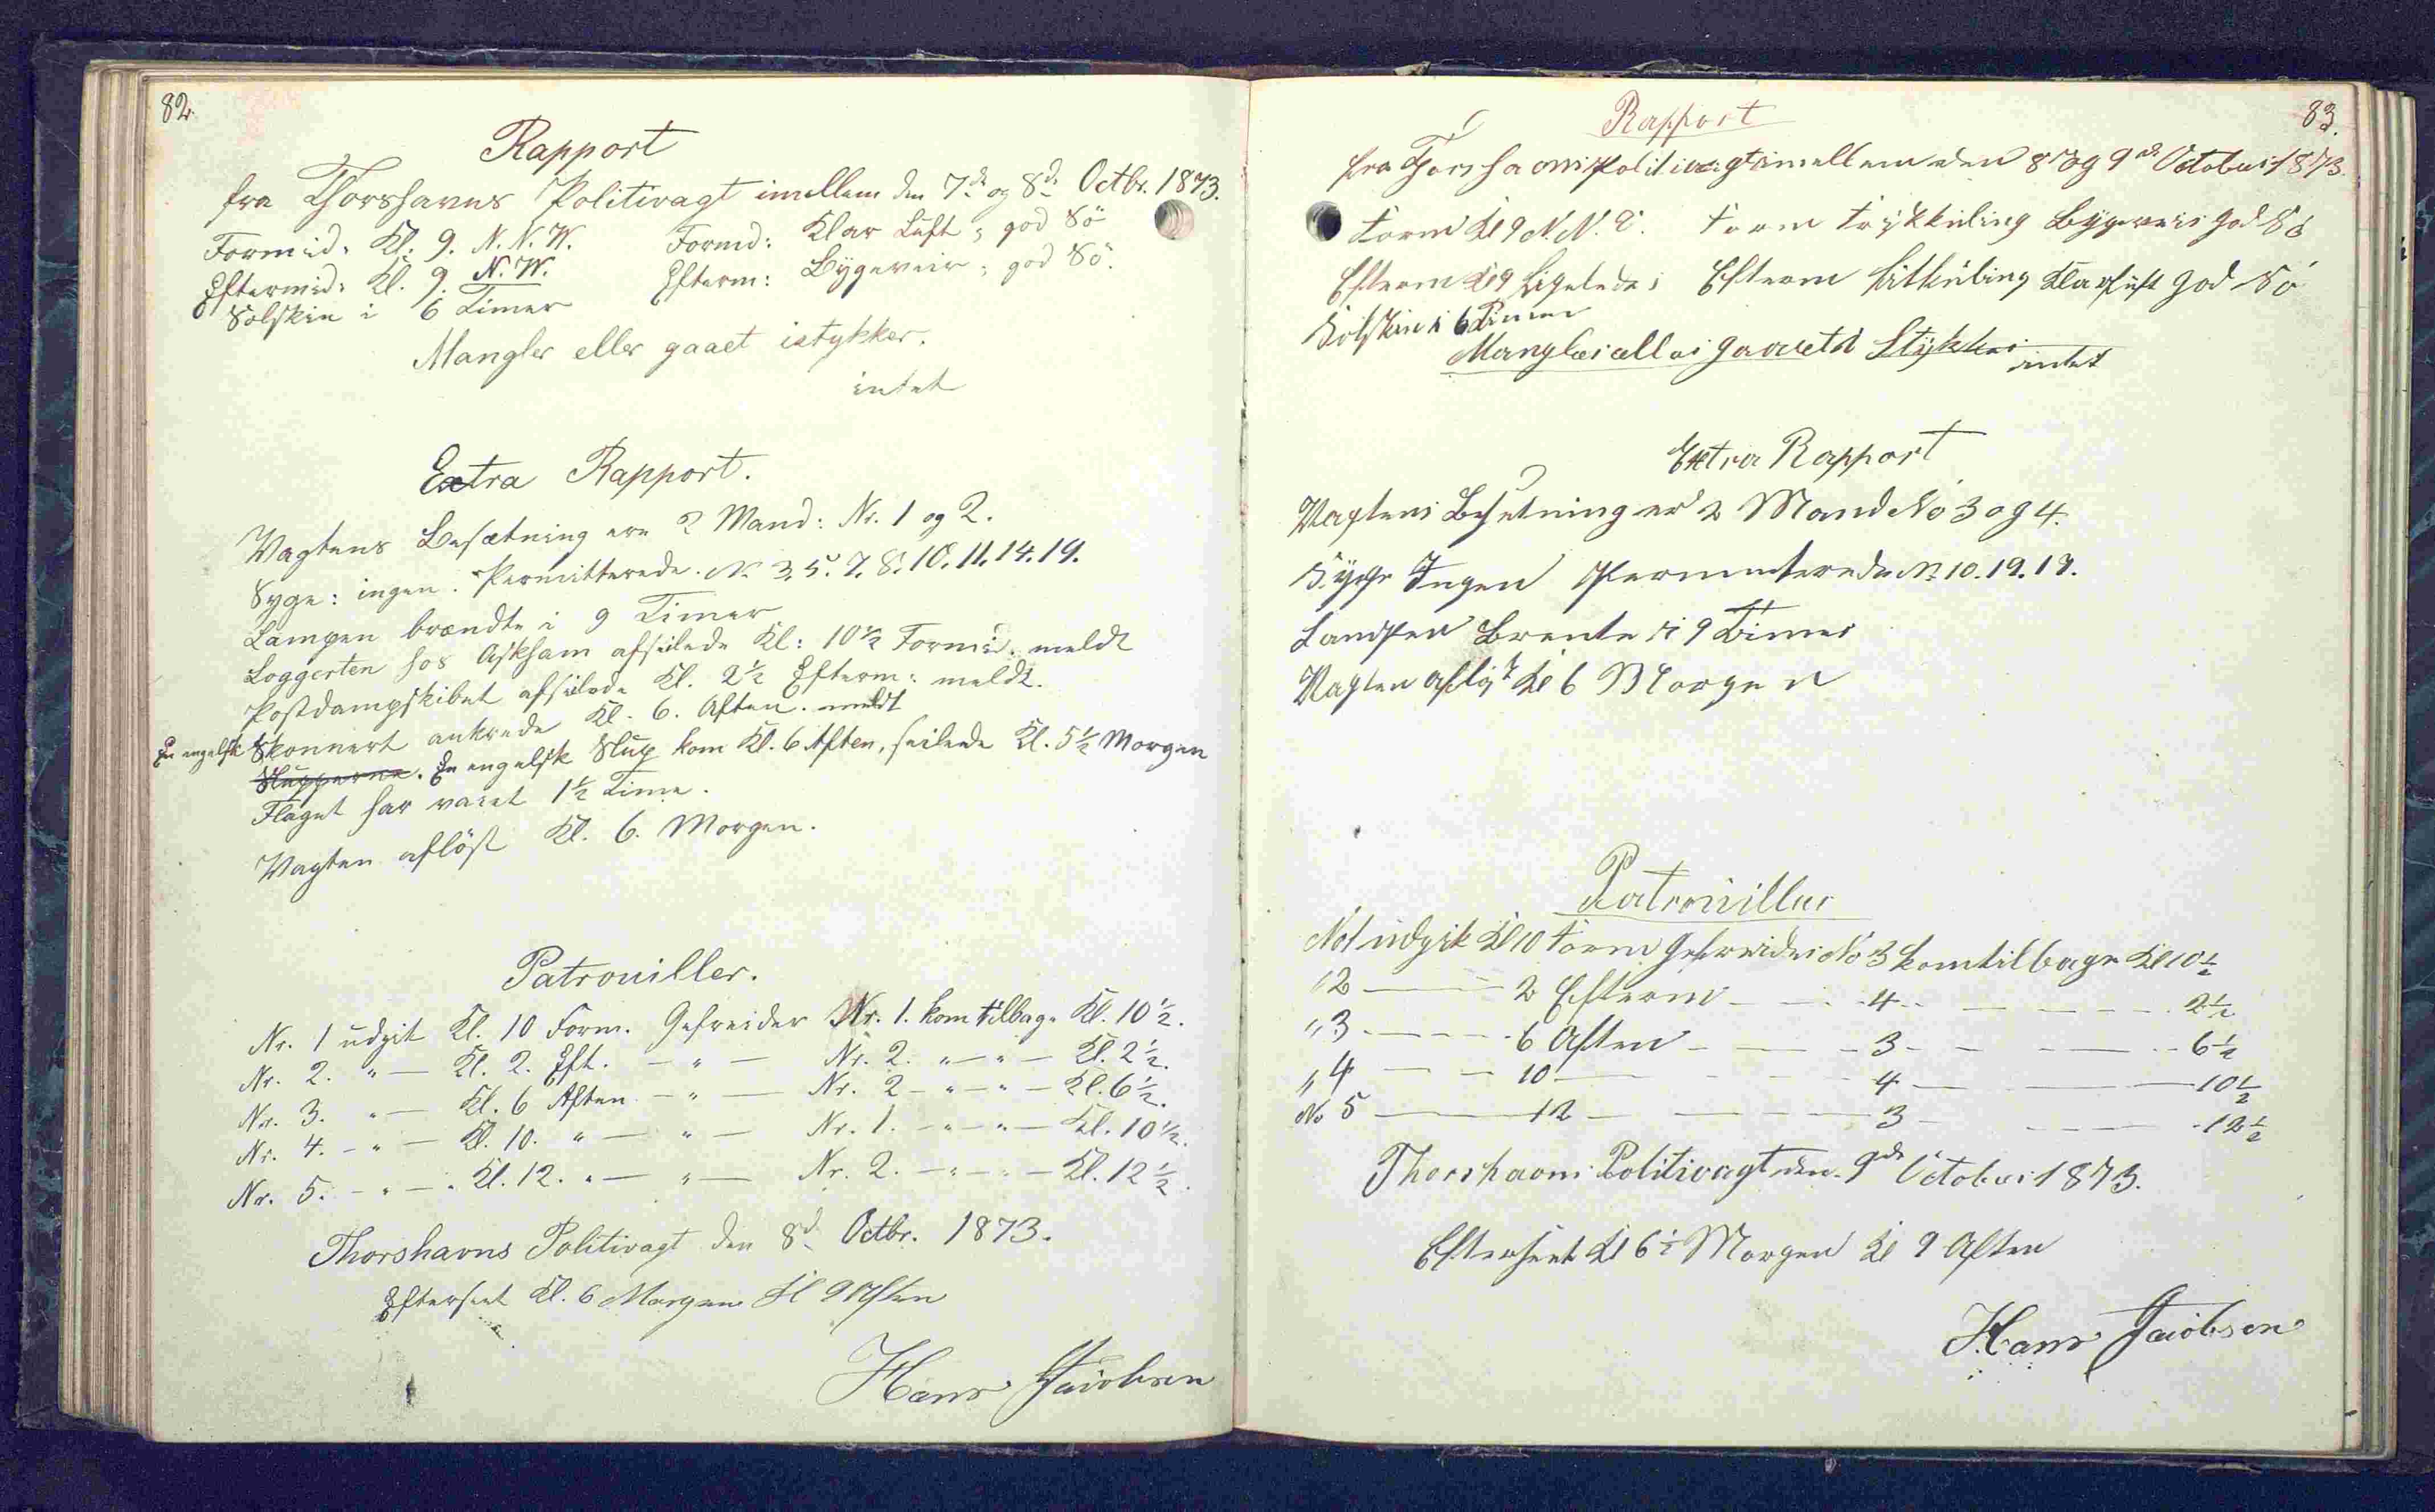 82.
Rapport
fra Thorshavns Politivagt imellem den 7de og 8de Octbr. 1873.
Formid: Kl. 9. N.N.W. Formd: Klar Luft; god Sö
Eftermid: Kl. 9. N.W. Efterm: Bygeveir; god Sö.
Solskin i 6 Timer
Mangler eller gaaet istykker.
intet
Extra Rapport.
Vagtens Besætning ere 2 Mand: Nr. 1 og 2.
Syge: ingen. Permitterede. No 3. 5. 7. 8. 10. 11. 14. 19.
Lampen brændte i 9 Timer
Loggerten hos Askham afseilede Kl: 10½ Formid. meldt
Postdampskibet afseilede Kl. 2½ Efterm: meldt.
En engelsk Skonnert ankrede Kl. 6. Aften. meldt
Slupperne. En engelsk Slup kom Kl. 6 Aften, seilede Kl. 5½ Morgen
Flaget har vaiet 1½ Time.
Vagten aflöst Kl. 6. Morgen.
Patrouiller.
Nr. 1 udgik Kl. 10 Form. Gefreider Nr. 1. kom tilbage Kl. 10½.
Nr. 2. " — Kl. 2. Eft. — " — Nr. 2. " — " — Kl. 2½.
Nr. 3. " — Kl. 6 Aften — " — Nr. 2 — " — " — Kl. 6½.
Nr. 4. — " — Kl. 10. " — " — Nr. 1. — " — " — Kl. 10½.
Nr. 5. — " — " Kl. 12. " — " — Nr. 2. — " — " — Kl. 12½.
Thorshavns Politivagt den 8d Octbr. 1873.
Efterseet Kl. 6 Morgen Kl 9 Aften
Hans Jacobsen
83.
Rapport
fra Thorshavns Politivagt imellem den 8de og 9de Octobers 1873.
Form Kl 9 N.N.O. Form Frykkuling Bygeveir god Sö
Efterm Kl 9 Ligeledes Efterm Litkuling Klarluft god Sö
Solskin i 6 Timer
Mangler eller gaaet i Stykker
intet
Extra Rapport
Vagtens Besetning er 2 Mand No 3 og 4.
Syge Ingen Permenterede No 10. 19. 13.
Lampen Brente i 9 Timer
Vagten aflöst Kl 6 Morgen
Patrouiller
No 1 udgik Kl 10 Form Gefreider No 3 kom tilbage Kl 10½
" 2 — — 2 Efterm — — 4 — — — 2½
" 3 — — 6 Aften — — 3 — — — 6½
" 4 — — 10 — — 4 — — — 10½
No 5 — — 12 — — 3 — — — 12½
Thorshavns Politivagt den 9de Octobers 1873.
Efterseet Kl 6½ Morgen Kl 9 Aften
Hans Jacobsen